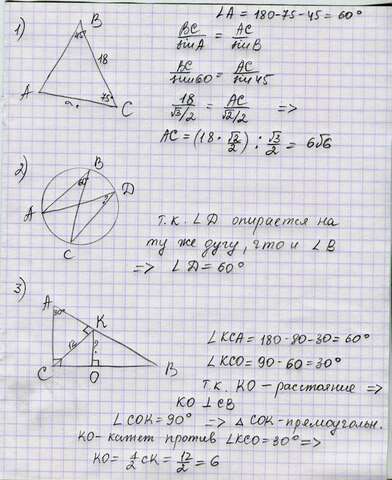 1)
B
45
18
A
75°
C
∠A = 180-75-45 = 60°
BC/sinA = AC/sinB
/sin60 = AC/sin45
18/(√3/2) = AC/(√2/2) =>
AC = (18 · √2/2) : √3/2 = 6√6
2)
B
60°
D
?
A
C
т.к. ∠D опирается на
ту же дугу, что и ∠B
=> ∠D = 60°
3)
A
30°
K
12
?
C
O
B
∠KCA = 180-90-30 = 60°
∠KCO = 90-60 = 30°
т.к. KO - расстояние =>
KO ⊥ CB
∠COK = 90° => △ COK - прямоугольн.
KO - катет против ∠KCO = 30° =>
KO = 1/2 CK = 12/2 = 6